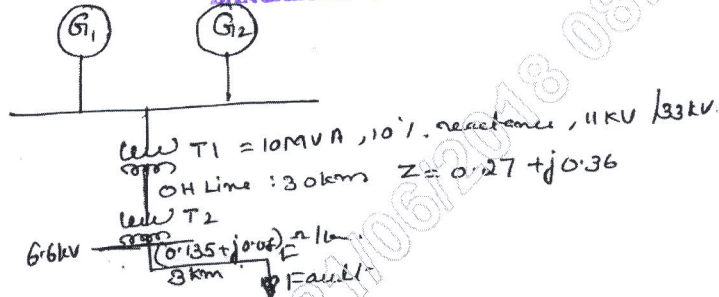 G1
G2
T1 = 10MVA, 10%. reactance, 11KV /33KV.
OH Line : 30kms Z = 0.27 + j0.36
T2
6.6kV
(0.135+j0.08) Ω/km.
3km
F
Fault
21/06/2018 08: